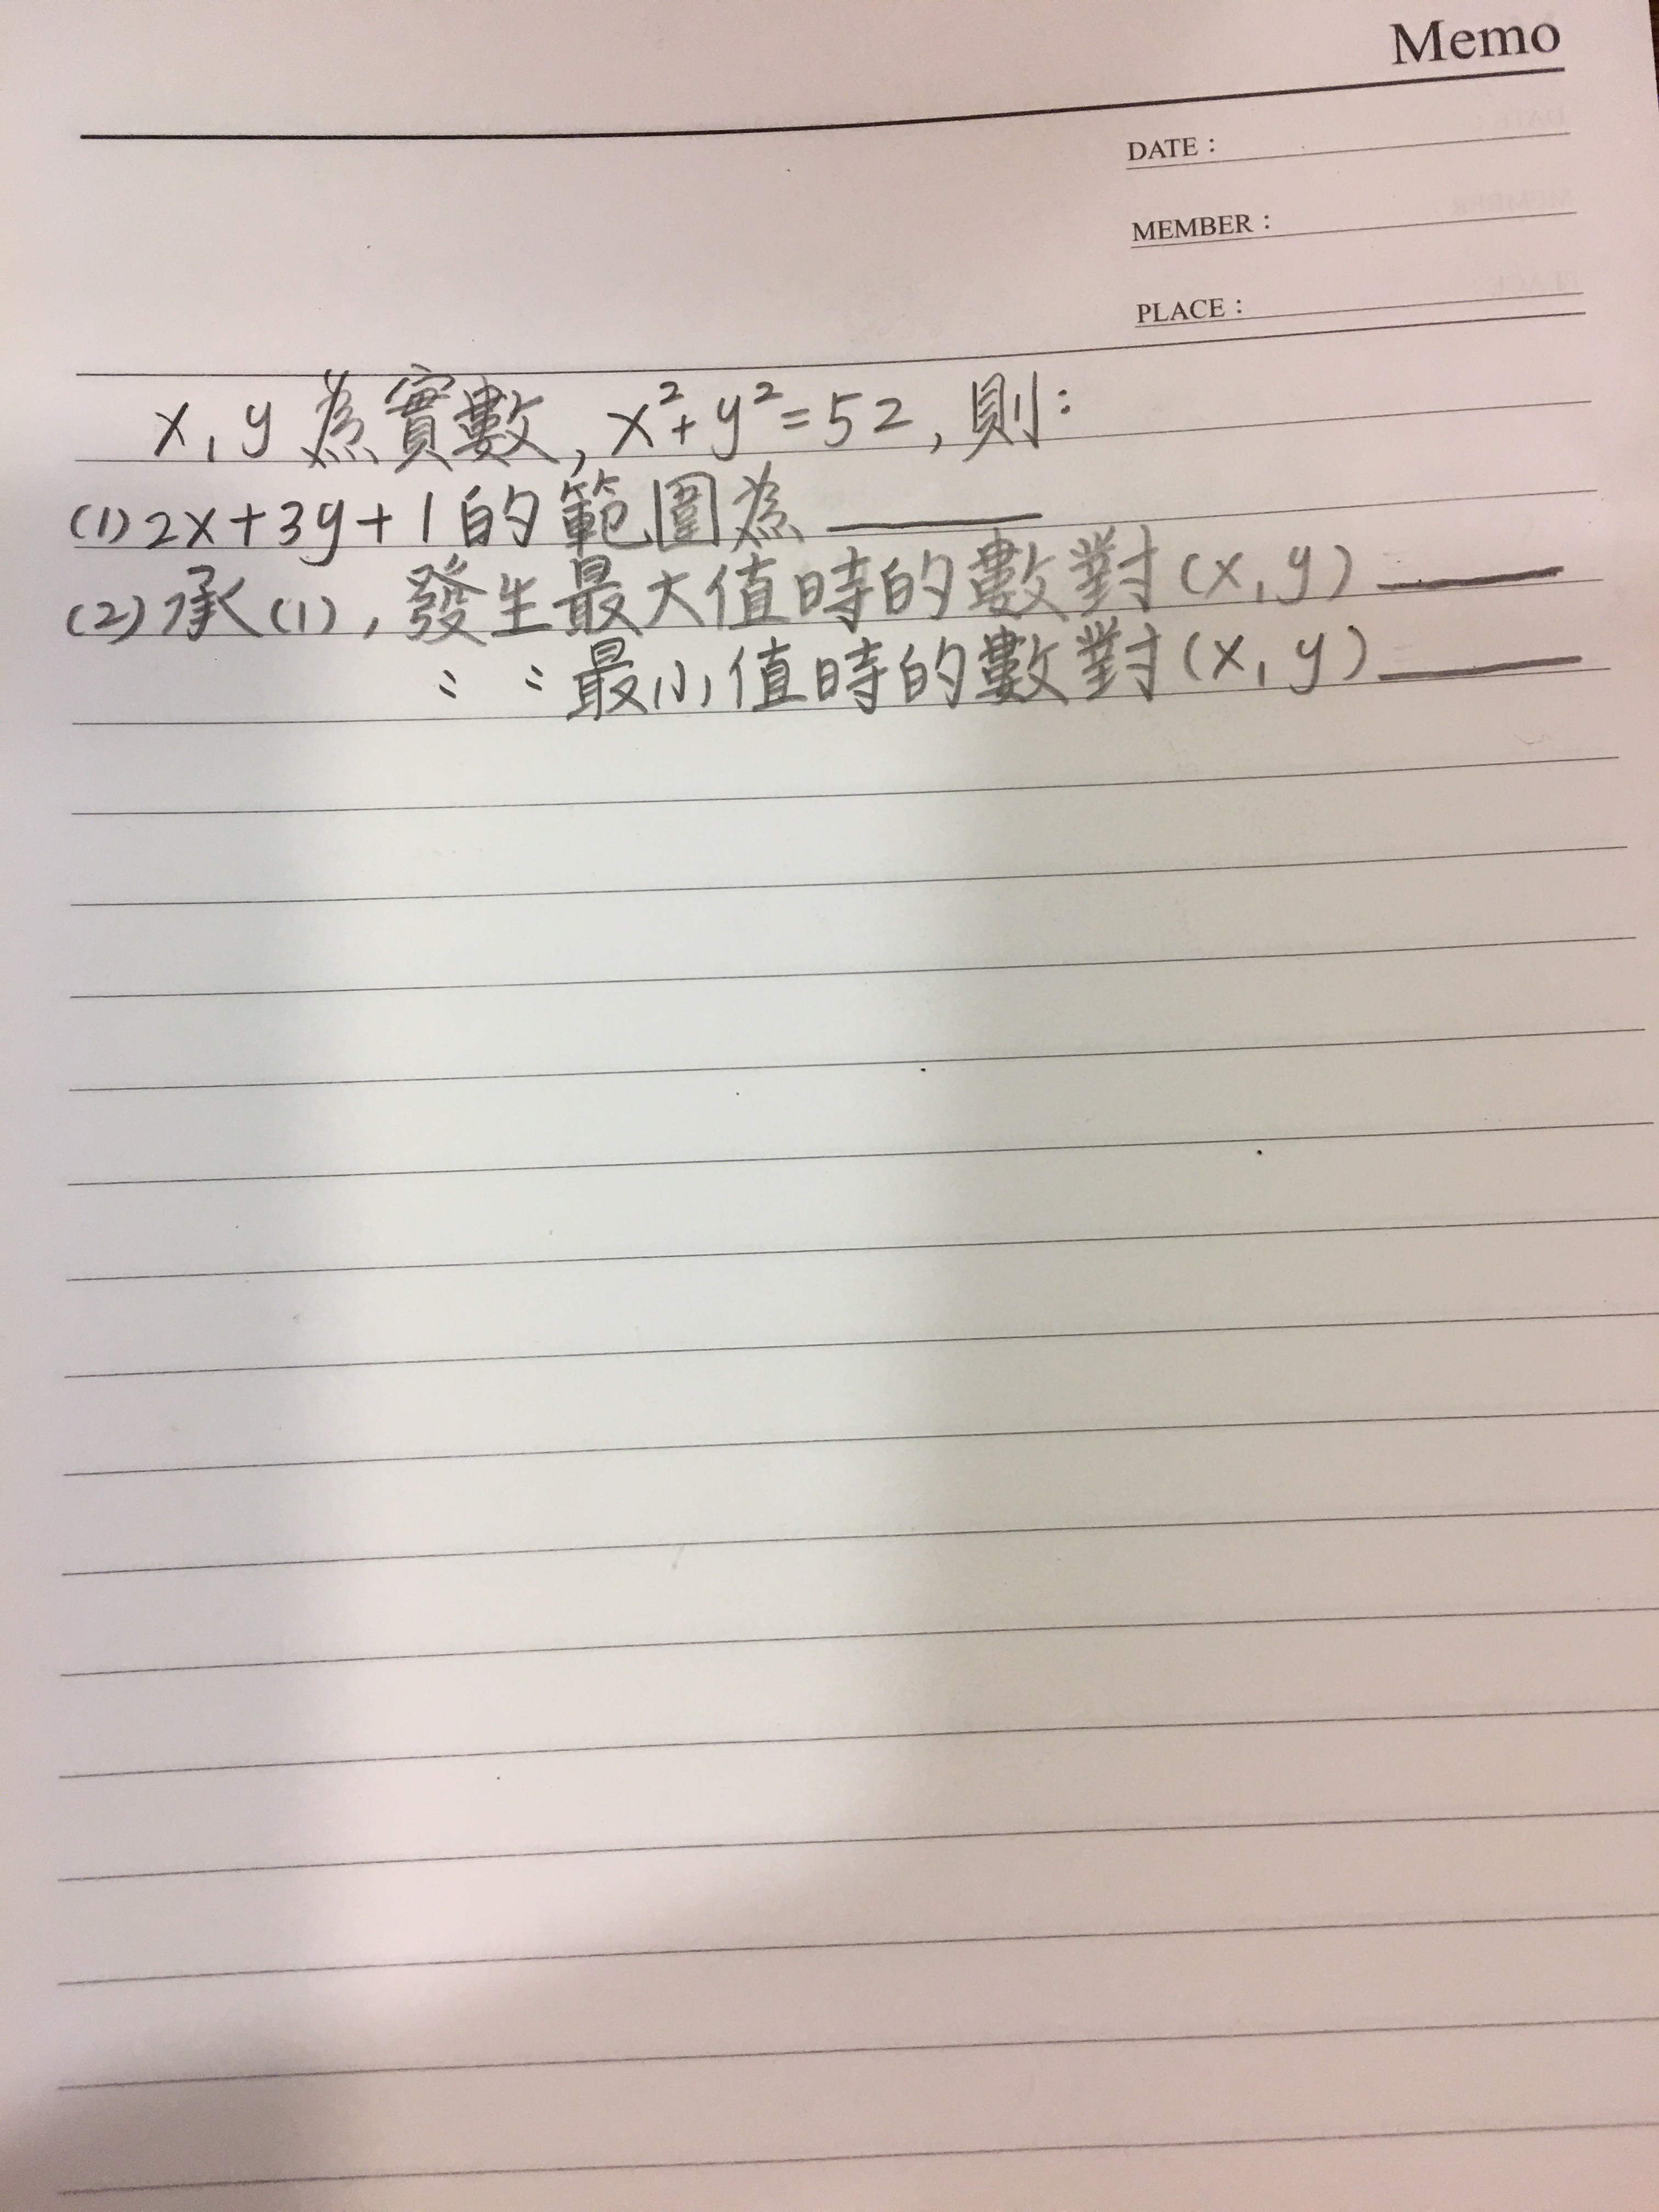 Memo
DATE：
MEMBER：
PLACE：
x, y 為實數, x²+y²=52, 則:
(1) 2x+3y+1 的範圍為______
(2) 承(1), 發生最大值時的數對(x, y)______
〃 〃 最小值時的數對(x, y)______